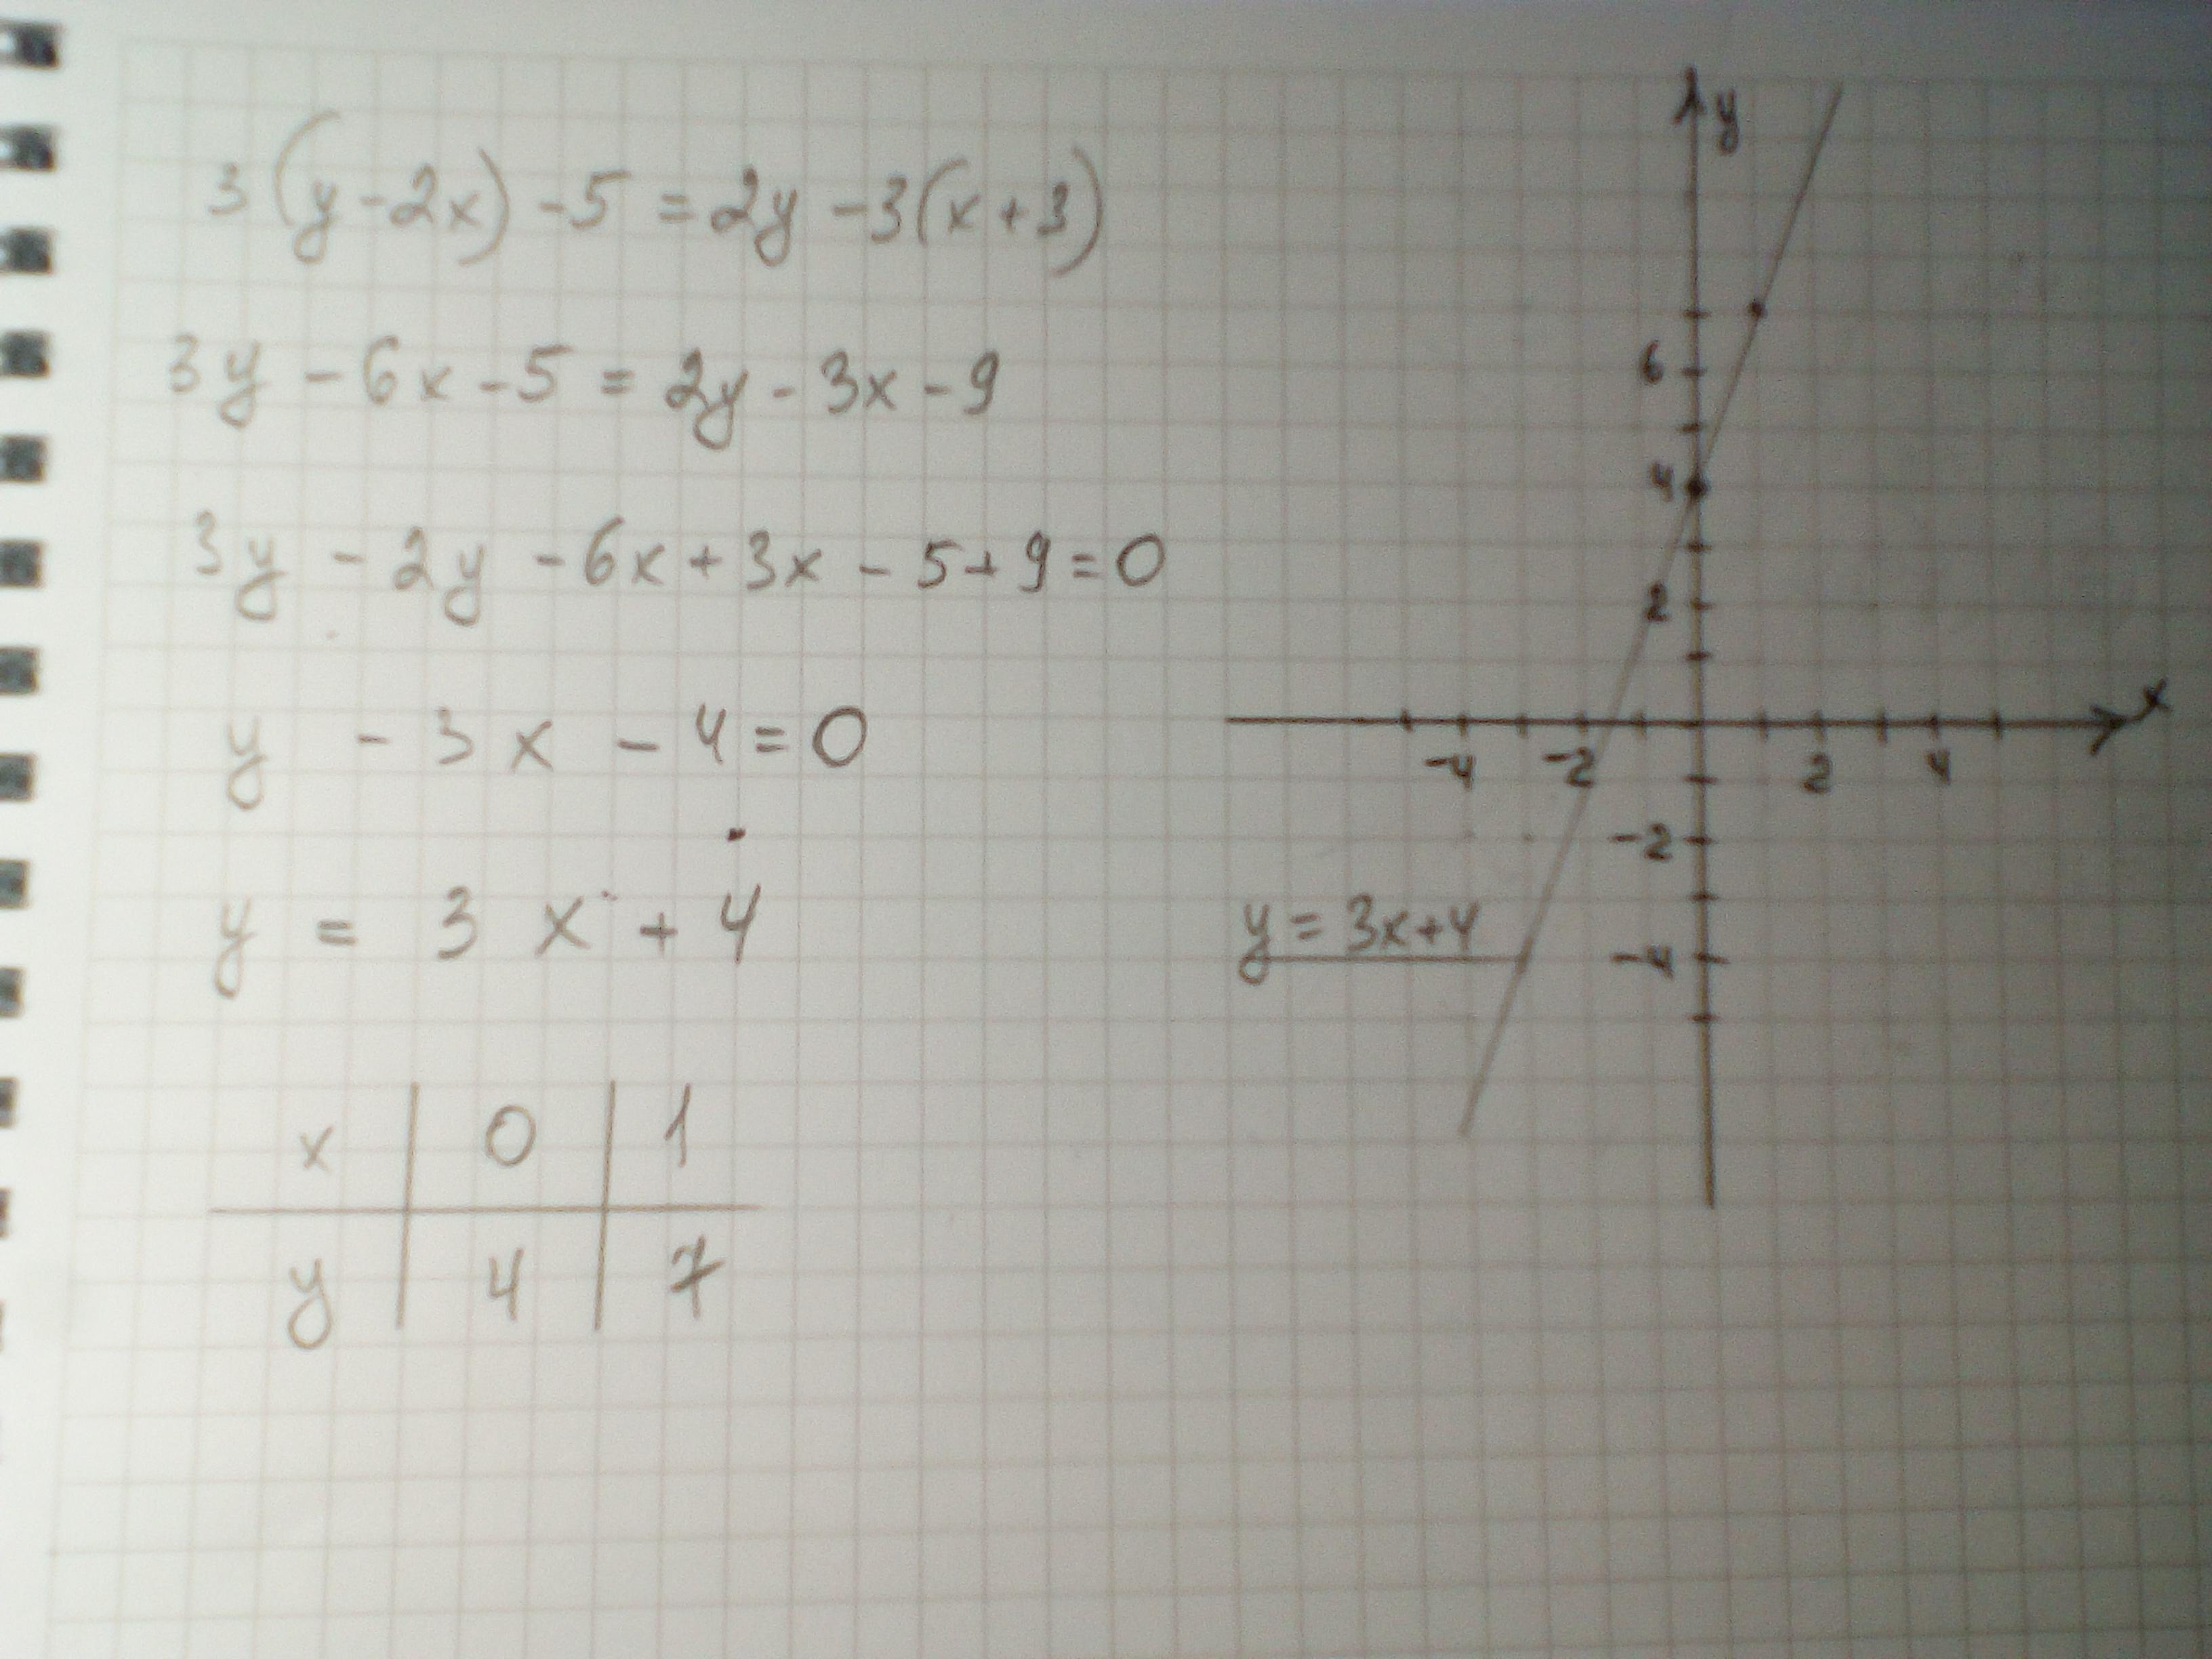 3(y-2x)-5=2y-3(x+3)
3y-6x-5=2y-3x-9
3y-2y-6x+3x-5+9=0
y-3x-4=0
y=3x+4
x | 0 | 1
y | 4 | 7
y
6
4
2
x
-4 -2 2 4
-2
y=3x+4
-4